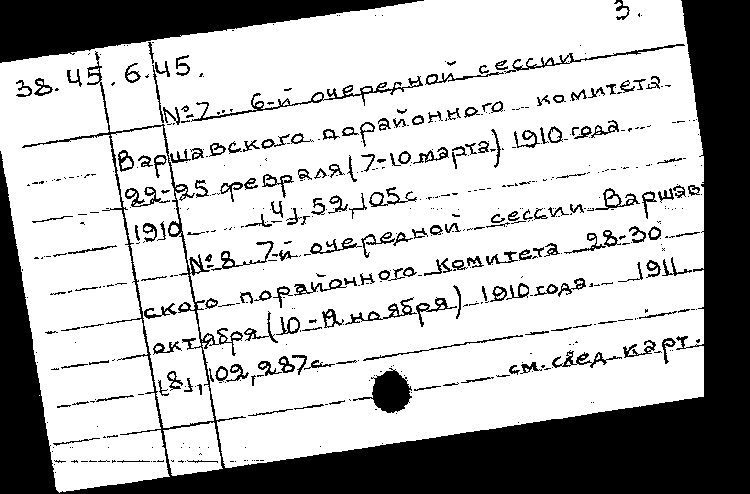 3.
38.45.6.45.
№7... 6-й очередной сессии
Варшавского порайонного комитета
22-25 февраля (7-10 марта) 1910 года.
1910. [4], 59, 105с
№8...7-й очередной сессии Варшав
ского порайонного комитета 28-30
октября (10-12 ноября) 1910 года. 1911.
[8], 102, 287с
см. след. карт.